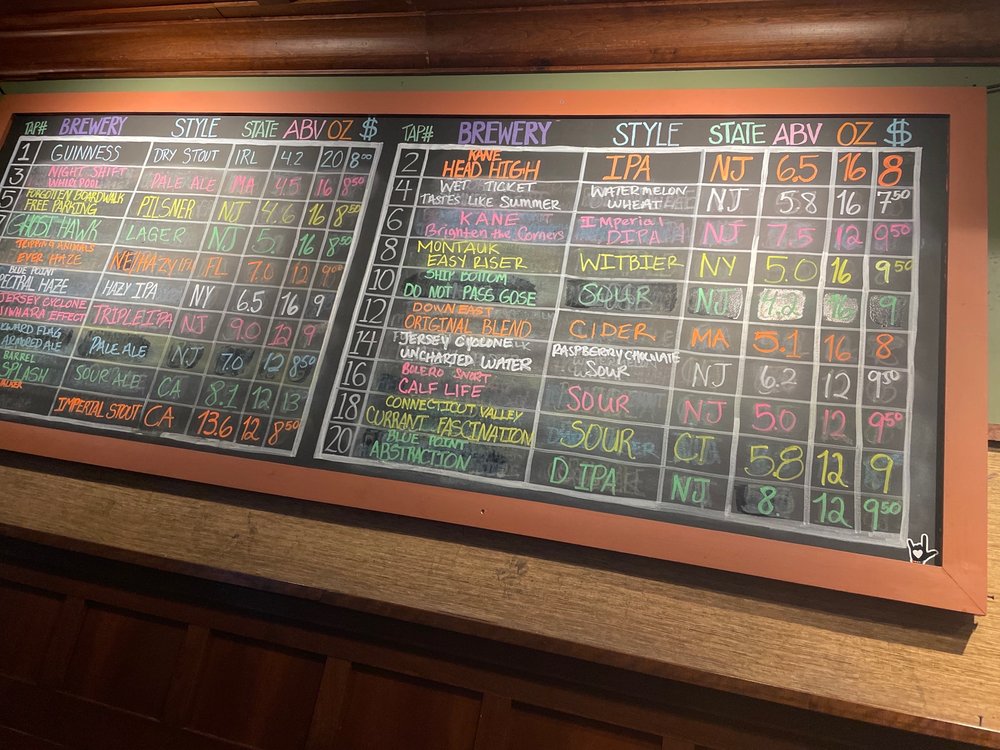 TAP# BREWERY STYLE STATE ABV OZ $
1 GUINNESS DRY STOUT IRL 4.2 20 8⁰⁰
3 NIGHT SHIFT
WHIRLPOOL PALE ALE MA 4.5 16 8⁵⁰
5 FORGOTTEN BOARDWALK
FREE PARKING PILSNER NJ 4.6 16 8⁵⁰
7 GHOST HAWK LAGER NJ 5. 16 8⁵⁰
TRIPPING ANIMALS
EVER HAZE NE/HAZY IPA FL 7.0 12
BLUE POINT
PECTRAL HAZE HAZY IPA NY 6.5 16 9
JERSEY CYCLONE
EFFECT TRIPLE IPA NJ 9.0 12 9
FLAG
ARMORED ALE PALE ALE NJ 7.0 12 8⁵⁰
BARREL
SPLASH SOUR ALE CA 8.1 12 13
IMPERIAL STOUT CA 13.6 12 8⁵⁰
TAP# BREWERY STYLE STATE ABV OZ $
2 KANE
HEAD HIGH IPA NJ 6.5 16 8
4 WET TICKET
TASTES LIKE SUMMER WATERMELON
WHEAT NJ 5.8 16 7⁵⁰
6 KANE
Brighten the Corners IImperial
DIPA NJ 7.5 12 9⁵⁰
8 MONTAUK
EASY RISER WITBIER NY 5.0 16 9⁵⁰
10 SHIP BOTTOM
DO NOT PASS GOSE SOUR NJ 4.2 16 9
12 DOWN EAST
ORIGINAL BLEND CIDER MA 5.1 16 8
14 JERSEY CYCLONE
UNCHARTED WATER RASPBERRY CHOCOLATE
SOUR NJ 6.2 12 9⁵⁰
16 BOLERO SNORT
CALF LIFE SOUR NJ 5.0 12 9⁵⁰
18 CONNECTICUT VALLEY
CURRANT FASCINATION SOUR CT 5.8 12 9
20 BLUE POINT
ABSTRACTION DIPA NJ 8. 12 9⁵⁰